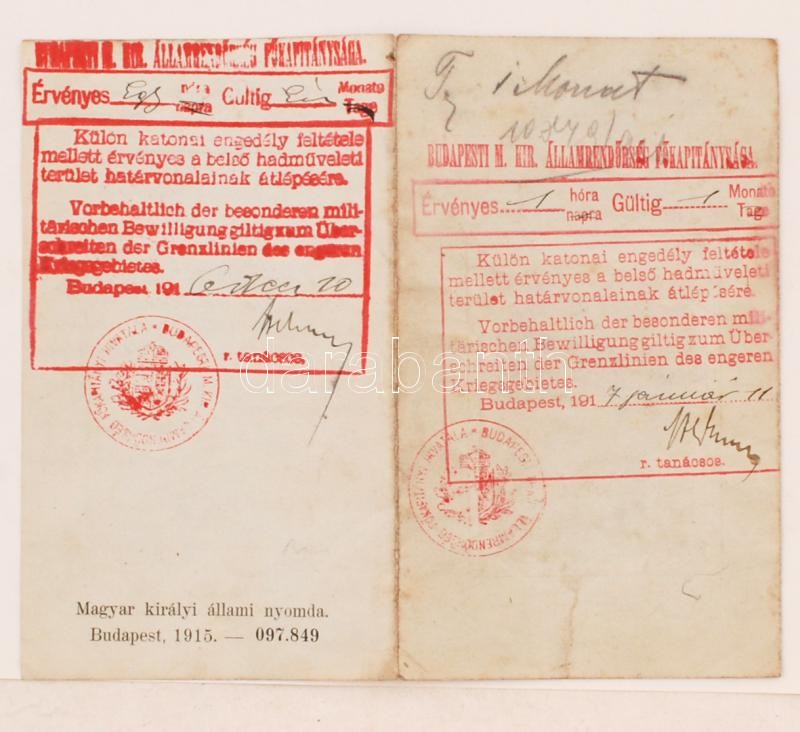 BUDAPESTI M. KIR. ÁLLAMRENDŐRSÉG FŐKAPITÁNYSÁGA.
Érvényes Egy hóra napra Gültig Ein Monate Tage
Külön katonai engedély feltétele
mellett érvényes a belső hadműveleti
terület határvonalainak átlépésére.
Vorbehaltlich der besonderen mili-
tärischen Bewilligung giltig zum Über-
schreiten der Grenzlinien des engeren
Kriegsgebietes.
Budapest 191
r. tanácsos.
Magyar királyi állami nyomda.
Budapest, 1915. — 097.849
1 Monat
BUDAPESTI M. KIR. ÁLLAMRENDŐRSÉG FŐKAPITÁNYSÁGA.
Érvényes 1 hóra napra Gültig 1 Monate Tage
Külön katonai engedély feltétele
mellett érvényes a belső hadműveleti
terület határvonalainak átlépésére.
Vorbehaltlich der besonderen mili-
tärischen Bewilligung giltig zum Über-
schreiten der Grenzlinien des engeren
Kriegsgebietes.
Budapest, 191 7 január 11
r. tanácsos.
darabanth